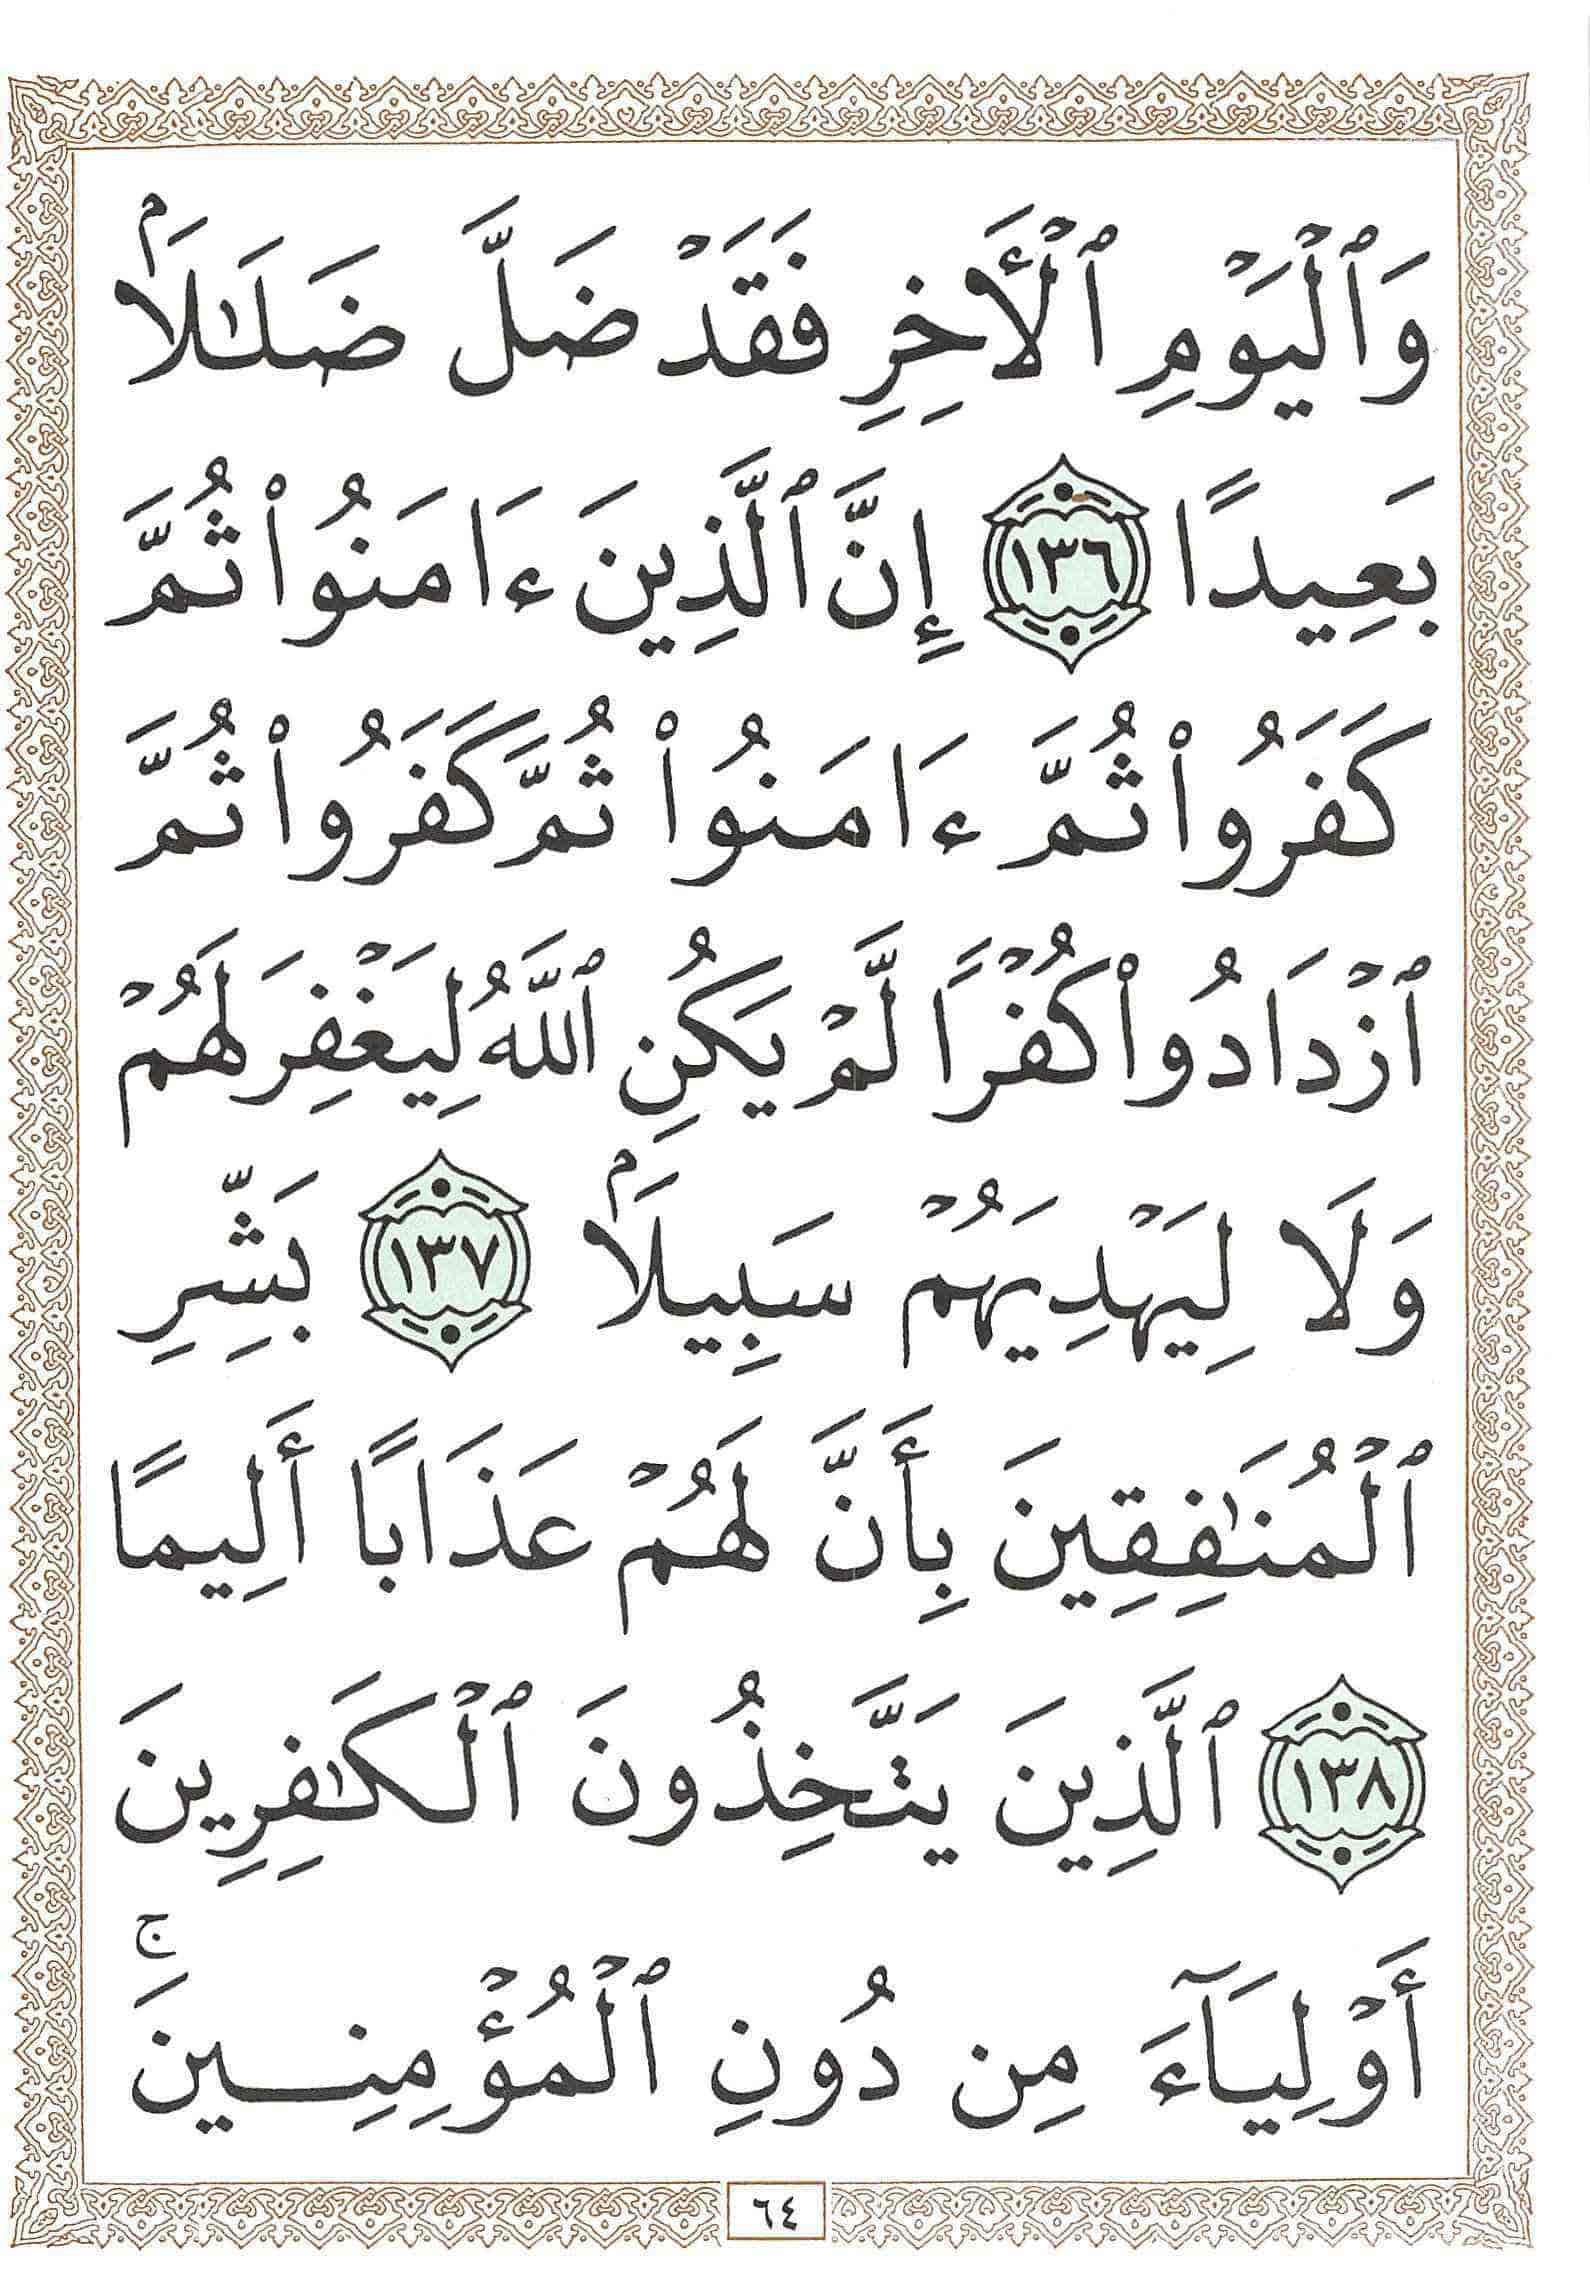 وَٱلْيَوْمِ ٱلْأَخِرِ فَقَدْ ضَلَّ ضَلَٰلَاۢ
بَعِيدًا ١٣٦ إِنَّ ٱلَّذِينَ ءَامَنُوا۟ ثُمَّ
كَفَرُوا۟ ثُمَّ ءَامَنُوا۟ ثُمَّ كَفَرُوا۟ ثُمَّ
ٱزْدَادُوا۟ كُفْرًا لَّمْ يَكُنِ ٱللَّهُ لِيَغْفِرَ لَهُمْ
وَلَا لِيَهْدِيَهُمْ سَبِيلَاۢ ١٣٧ بَشِّرِ
ٱلْمُنَٰفِقِينَ بِأَنَّ لَهُمْ عَذَابًا أَلِيمًا
١٣٨ ٱلَّذِينَ يَتَّخِذُونَ ٱلْكَٰفِرِينَ
أَوْلِيَآءَ مِن دُونِ ٱلْمُؤْمِنِينَۚ
٦٤